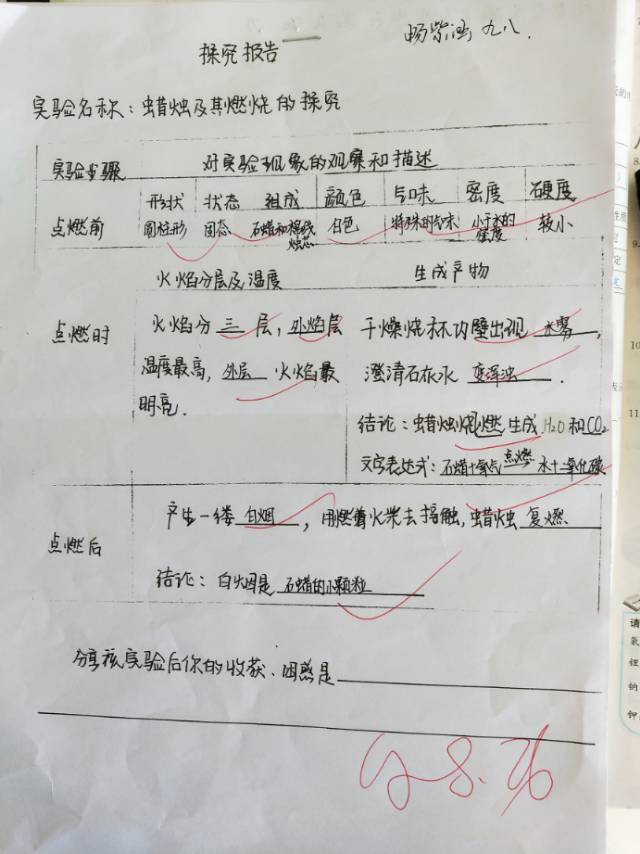 杨紫涵 九八.
探究报告
实验名称：蜡烛及其燃烧的探究
实验步骤 对实验现象的观察和描述
形状 状态 组成 颜色 气味 密度 硬度
点燃前 圆柱形 固态 石蜡和棉线烛芯 白色 特殊的气味 小于水的密度 较小
火焰分层及温度 生成产物
点燃时 火焰分三层，外焰层 干燥烧杯内壁出现水雾，
温度最高，外层火焰最 澄清石灰水变浑浊.
明亮.
结论：蜡烛燃烧生成H2O和CO2
文字表达式：石蜡+氧气 点燃 水+二氧化碳
产生一缕白烟，用燃着火柴去接触，蜡烛复燃
点燃后
结论：白烟是石蜡的小颗粒
分享该实验后你的收获、困惑是
请
氢
钾
钠
8.
9.
10
11